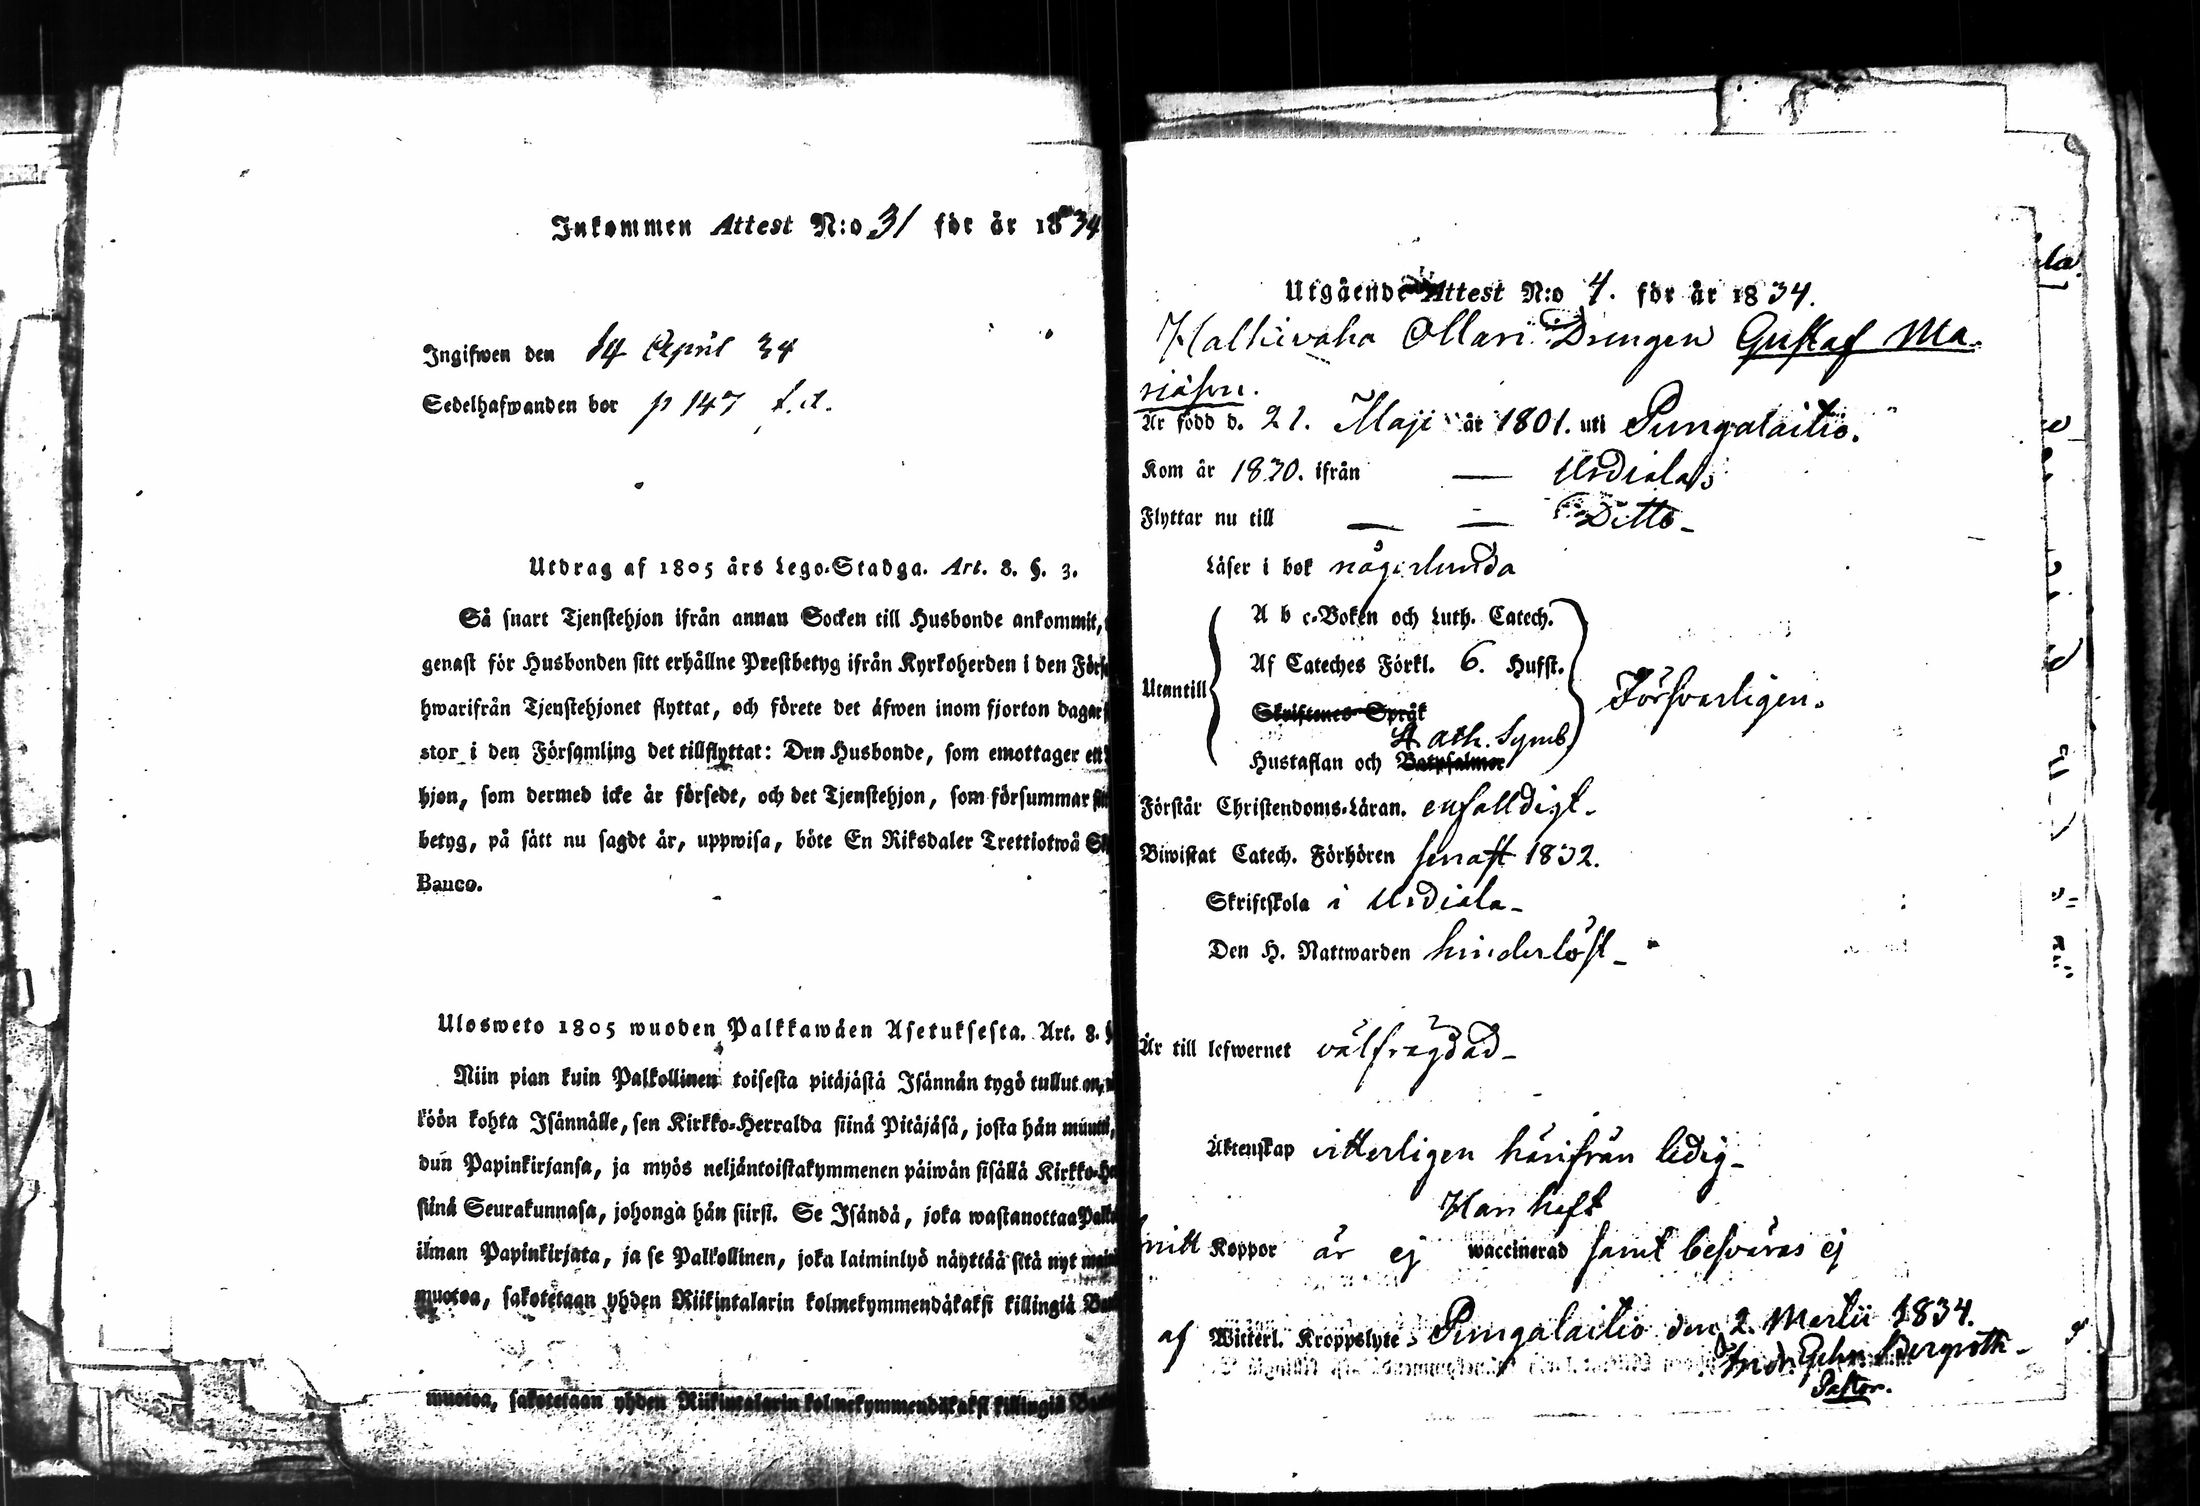 Inkommen Attest N:o 31 för år 1834
Ingifwen den 14 April 34
Sedelhafwanden bor p 147
Utdrag af 1805 års Lego-Stadga. Art. 8. §. 3.
Så snart Tjenstehjon ifrån annan Socken till Husbonde ankommit,
genast för Husbonden sitt erhållne Prestbetyg ifrån Kyrkoherden i den Förs
hwarifrån Tjenstehjonet flyttat, och förete det äfwen inom fjorton dagar
stor i den Församling det tillflyttat: Den Husbonde, som emottager ett
hjon, som dermed icke är försedt, och det Tjenstehjon, som försummar sitt
betyg, på sätt nu sagdt är, uppwisa, böte En Riksdaler Trettiotwå Sk
Banco.
Ulosweto 1805 wuoden Palkkawäen Asetuksesta. Art. 8. §
Niin pian kuin Palkollinen toisesta pitäjästä Isännän tygö tullut on,
köön kohta Isännälle, sen Kirkko-Herralda siinä Pitäjäsä, josta hän muutti,
dun Papinkirjansa, ja myös neljäntoistakymmenen päiwän sisällä Kirkko-He
siinä Seurakunnasa, johonga hän siirsi. Se Isändä, joka wastanottaa Palko
ilman Papinkirjata, ja se Palkollinen, joka laiminlyö näyttää sitä nyt main
muotoa, sakotetaan yhden Riikintalarin kolmekymmendäkaksi killingiä Ban
muotoa, sakotetaan yhden Riikintalarin kolmekymmendäkaksi killingiä Ban
Utgående Attest N:o 4. för år 1834.
Halkivaha Ollari Drengen Gustaf Ma-
riäson.
Är född d. 21. Maji år 1801. uti Pungalaitio.
Kom år 1830. ifrån — Urdiala;
Flyttar nu till — — Ditto -
Läser i bok någorlunda
A b c-Boken och Luth. Catech.
Af Cateches Förkl. 6. Hufst.
Utantill Försvarligen.
Skriftenes Språk
At ath. Symb.
Hustaflan och Botpsalmer
Förstår Christendoms-Läran. enfalldigt -
Biwistat Catech. Förhören senast 1832.
Skriftskola i Urdiala -
Den H. Nattwarden hinderlöst -
Är till lefwernet välfrägdad -
Äktenskap vitterligen härifrån ledig -
Han haft
Koppor är ej waccinerad samt besväras ej
af Witterl. Kroppslyte; Pungalaitio den 2. Martii 1834.
Andr. Joh. Bergroth -
Pastor.